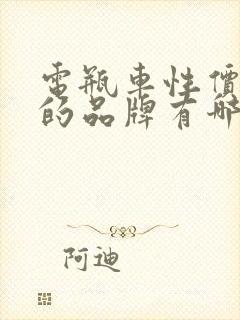 電瓶車性價
的品牌有哪
阿迪